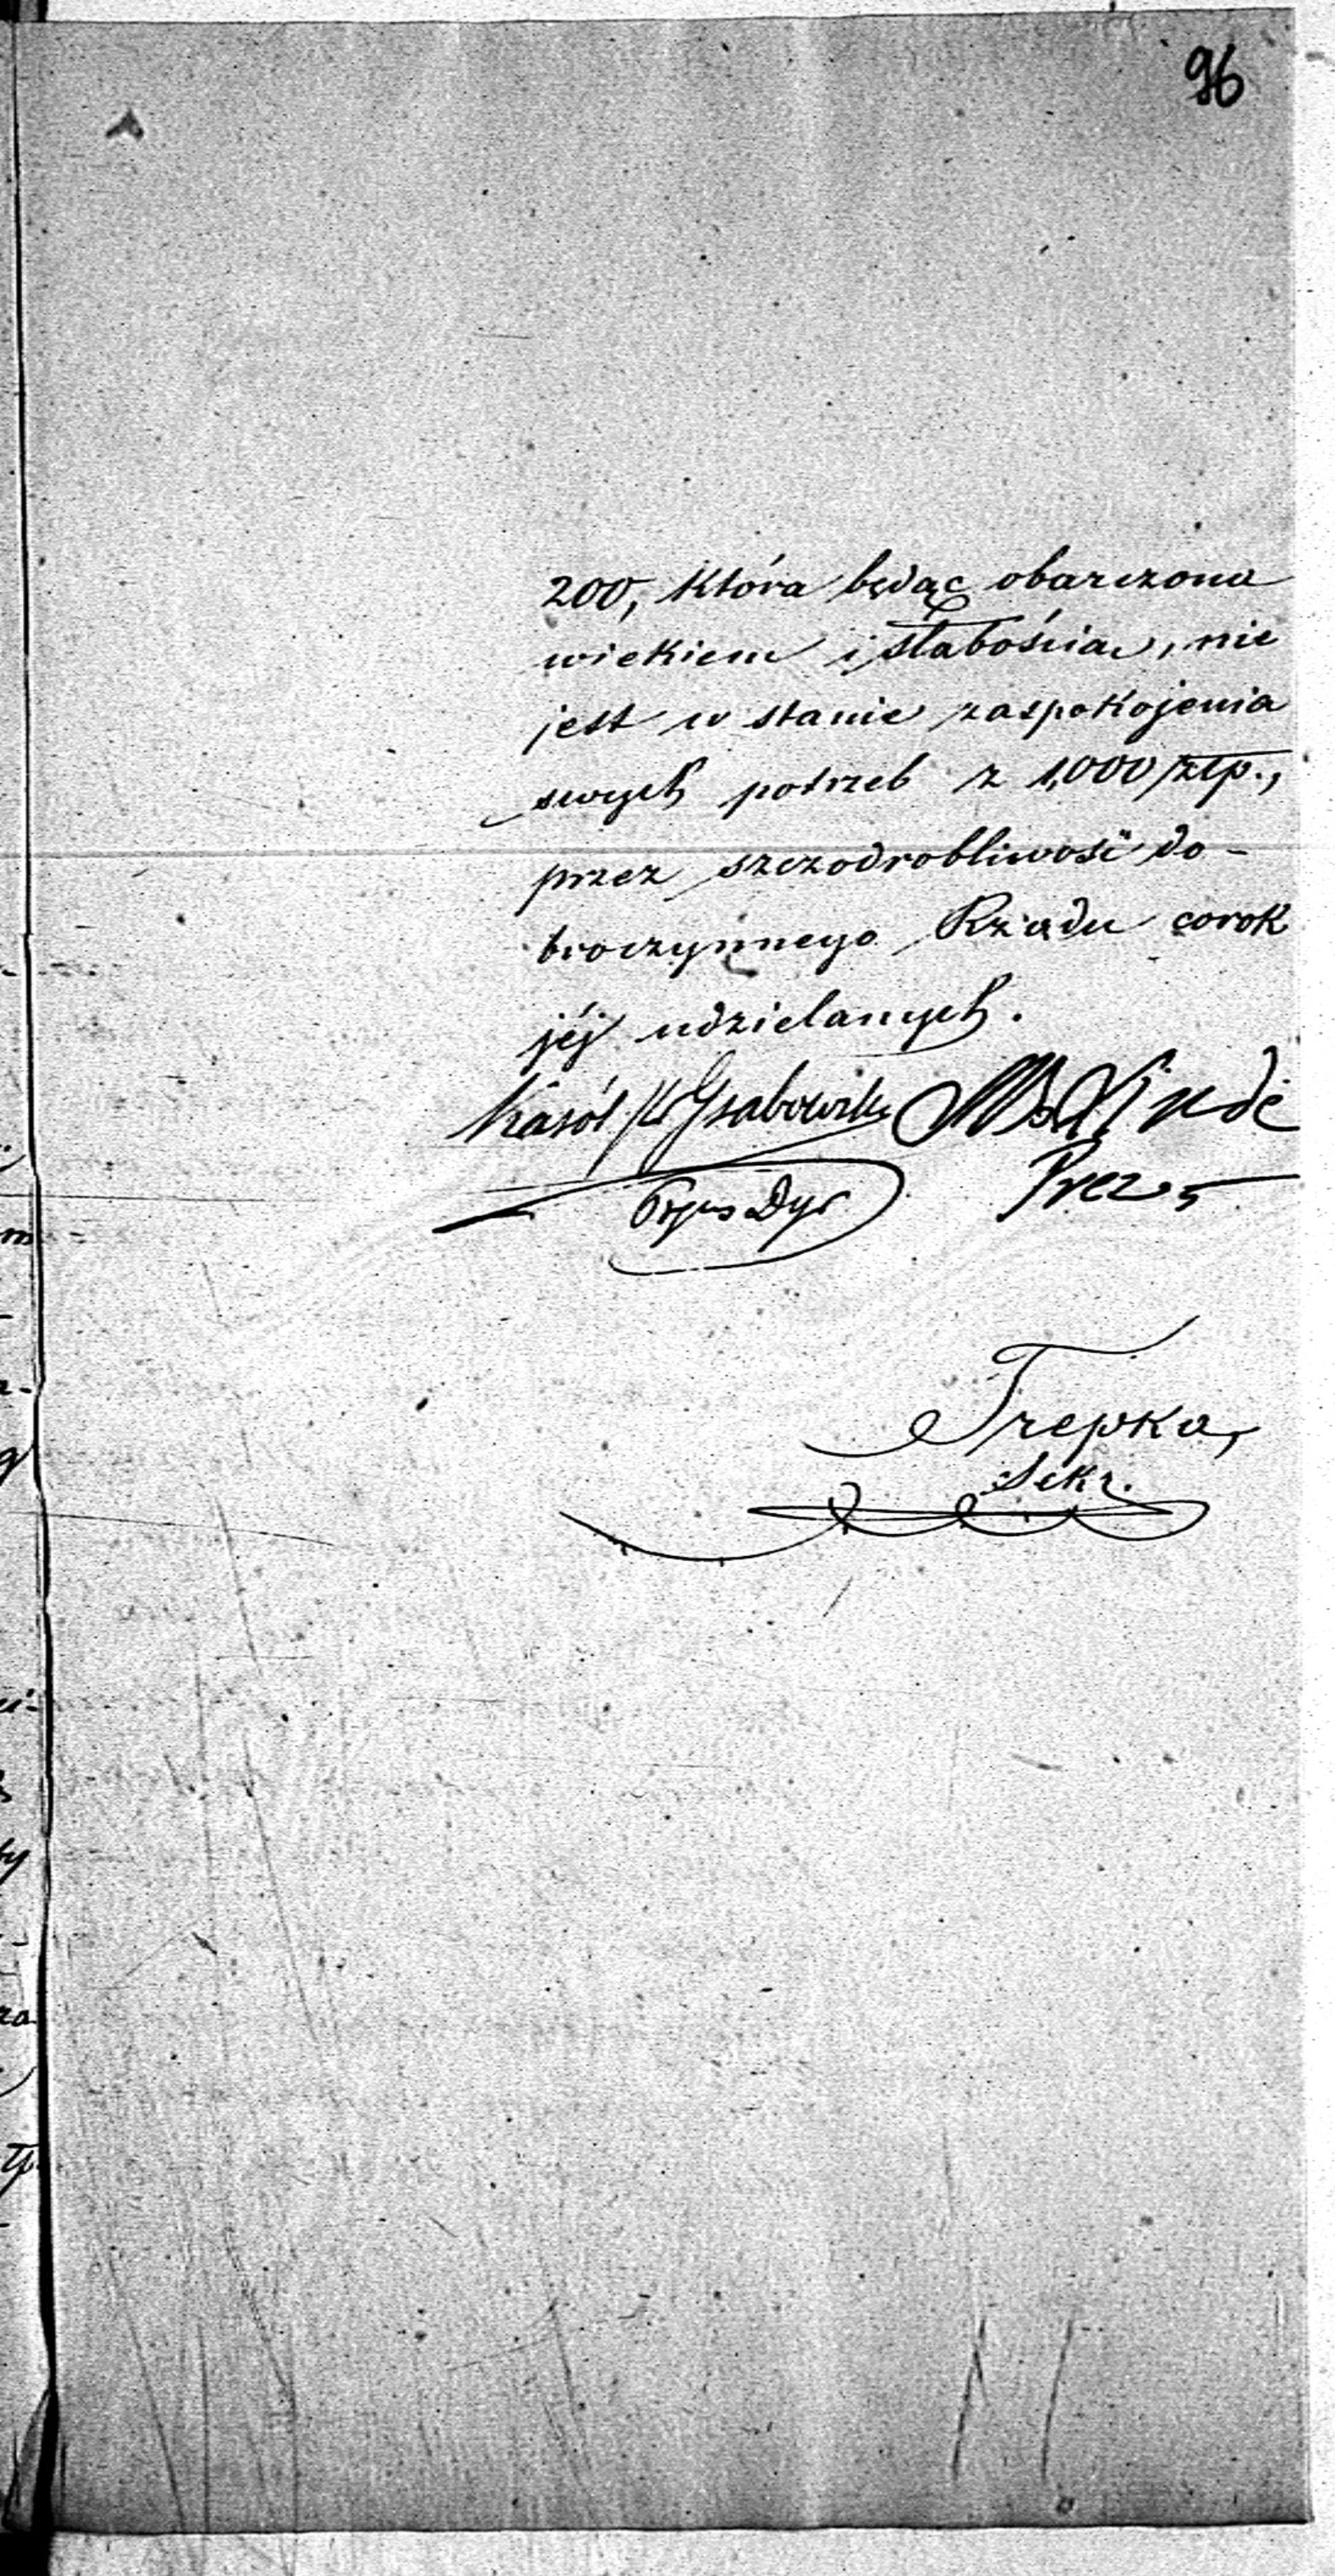 96
200, która będąc obarczona
wiekiem i słabością, nie
jest w stanie zaspokojenia
swych potrzeb z 1,000 złp.,
przez szczodrobliwość do-
broczynnego Rządu corok
jéj udzielanych.
Karól Grabowski Linde
Dyr Prez
Trepka,
Sekr.